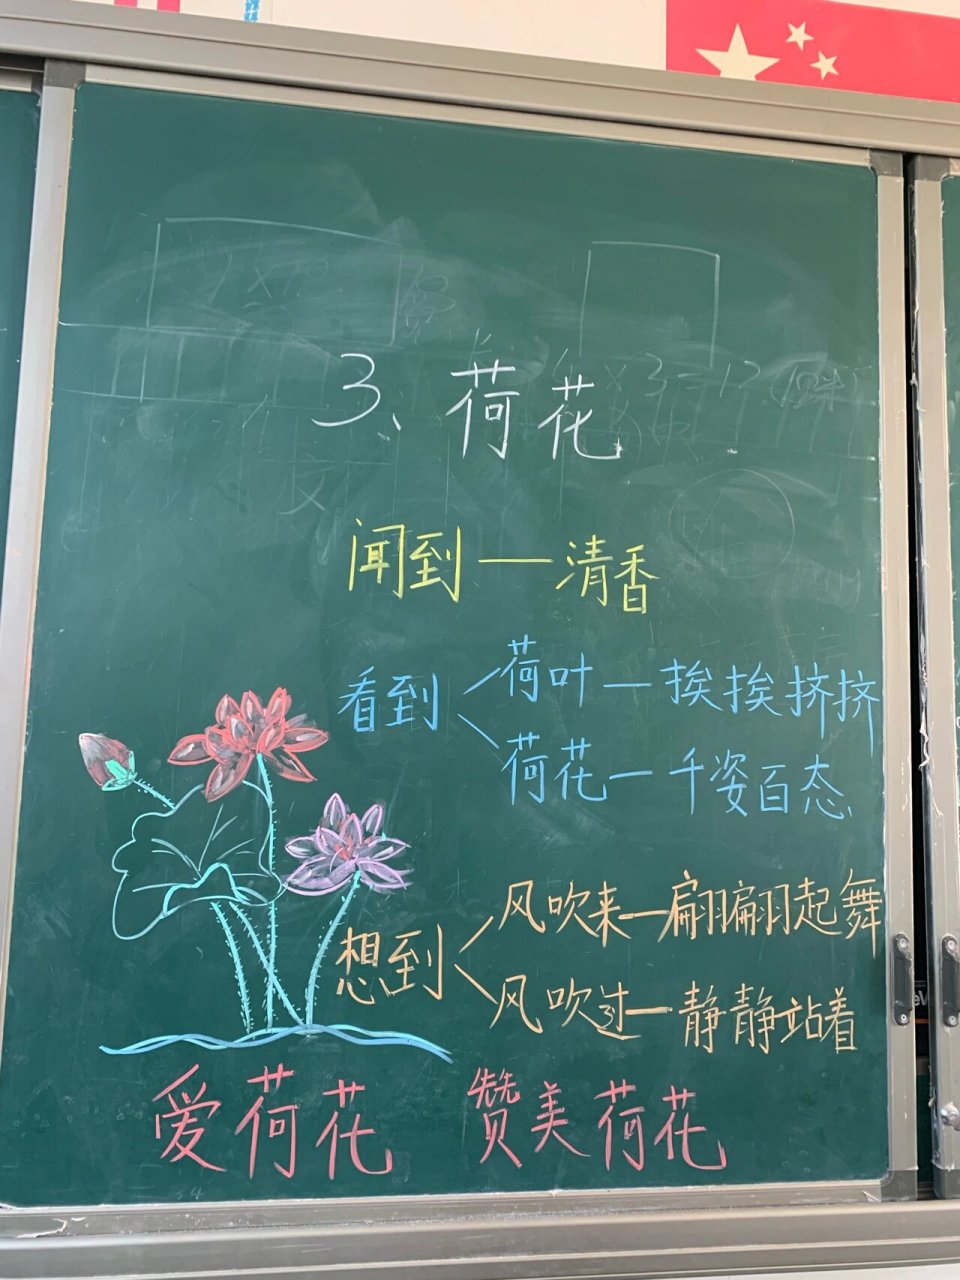 3、荷花
闻到—清香
看到
荷叶—挨挨挤挤
荷花—千姿百态
想到
风吹来—翩翩起舞
风吹过—静静站着
爱荷花 赞美荷花